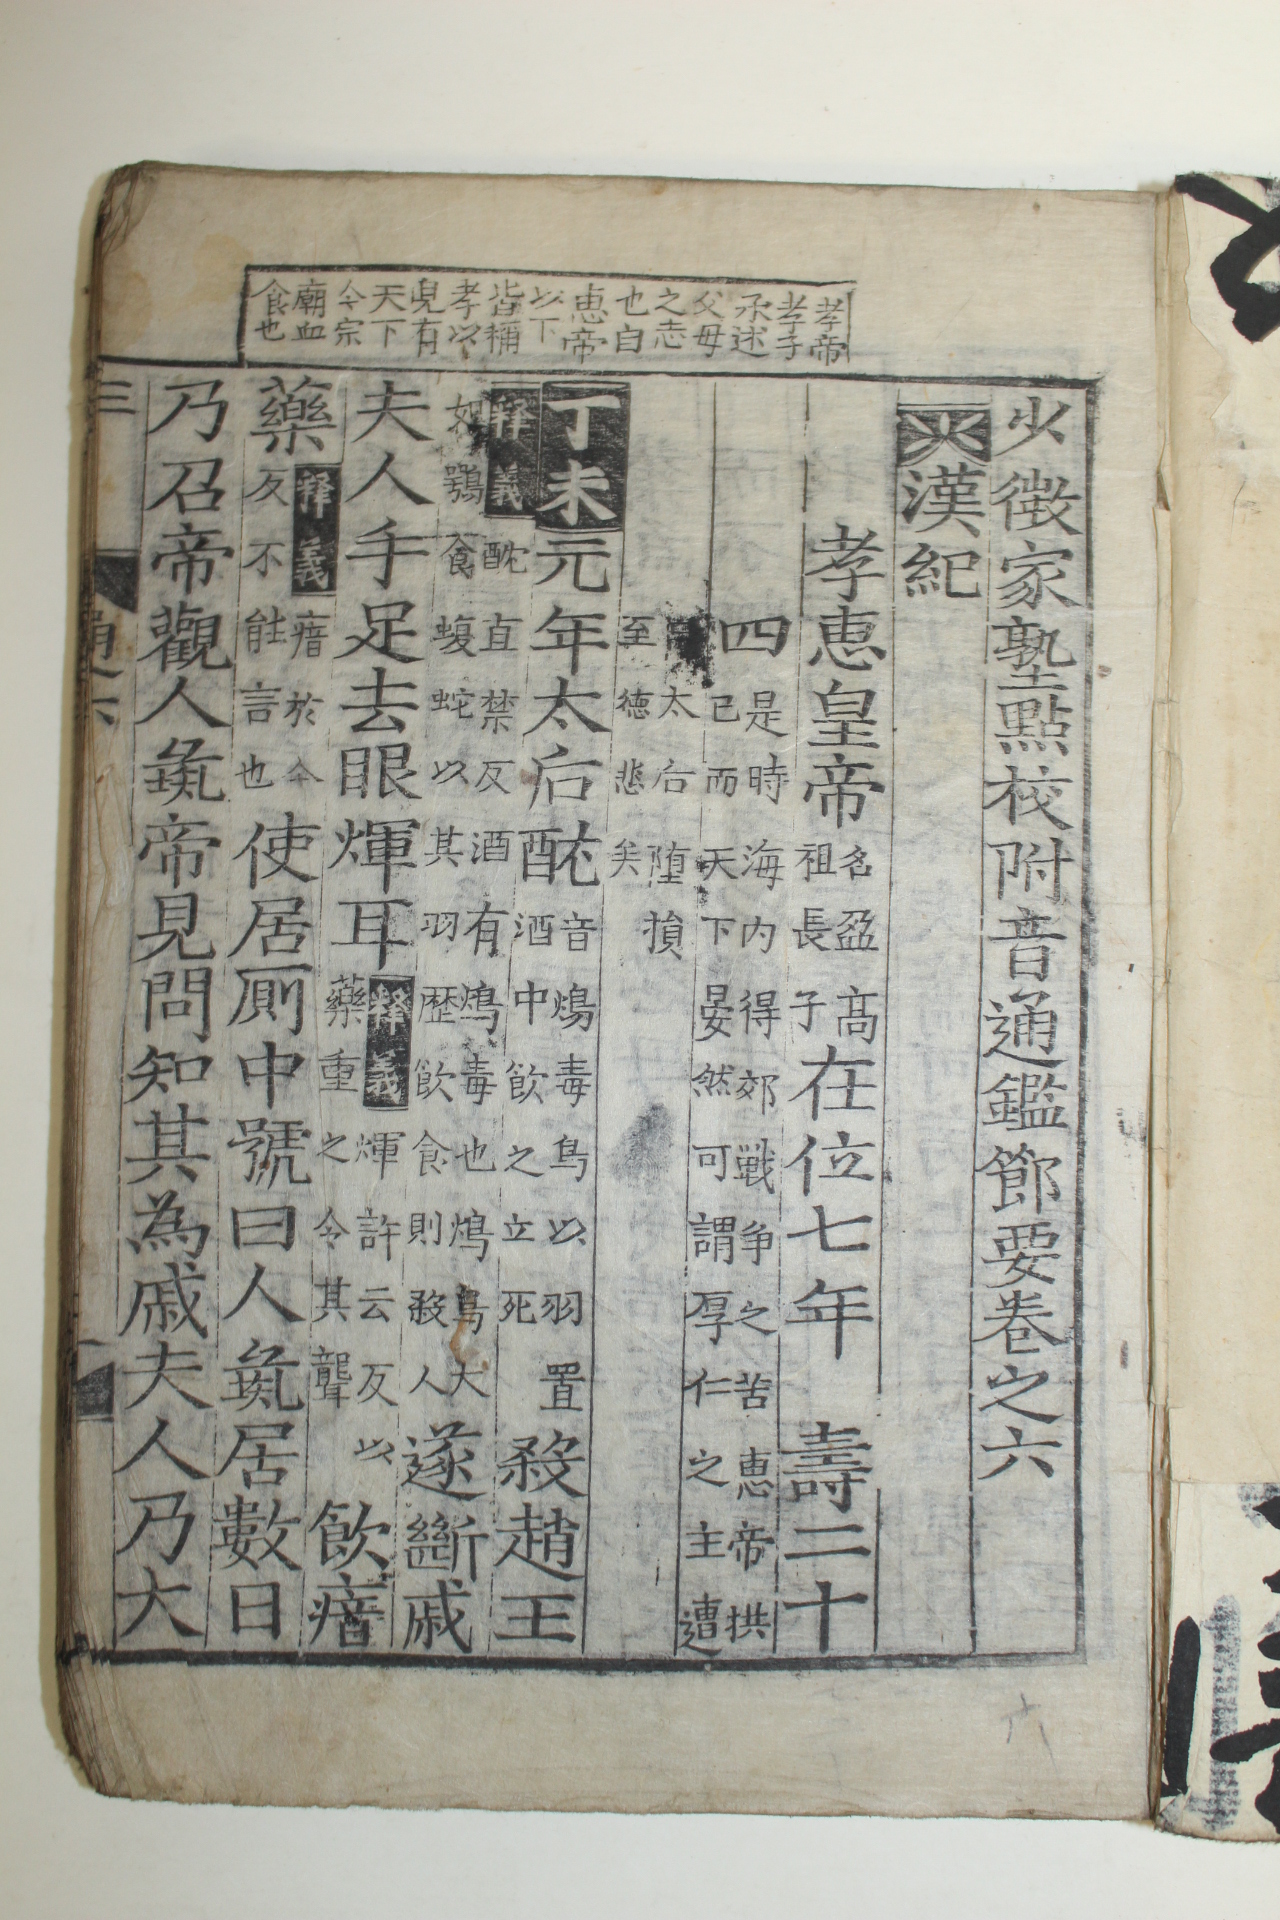 孝帝
孝子
承述
父母
之志
也自
恵帝
以下
皆稱
孝以
皃有
天下
令宗
廟血
食也
少微家塾點校附音通鑑節要卷之六
漢紀
孝恵皇帝名盈高祖長子在位七年 壽二十
四是時海内得郊戰争之苦恵帝拱己而天下晏然可謂厚仁之主遭
太后堕損至徳悲矣
丁未元年太后酖音鴆毒鳥以羽置酒中飲之立死殺趙王
釋義酖直禁反酒有鴆毒也鴆鳥大如鶚食蝮蛇以其羽歴飲食則殺人遂斷戚
夫人手足去眼煇耳釋義煇許云反以藥重之令其聾飲瘖
藥釋義瘖於今反不能言也使居厠中號曰人彘居數日
乃召帝觀人彘帝見問知其為戚夫人乃大
六